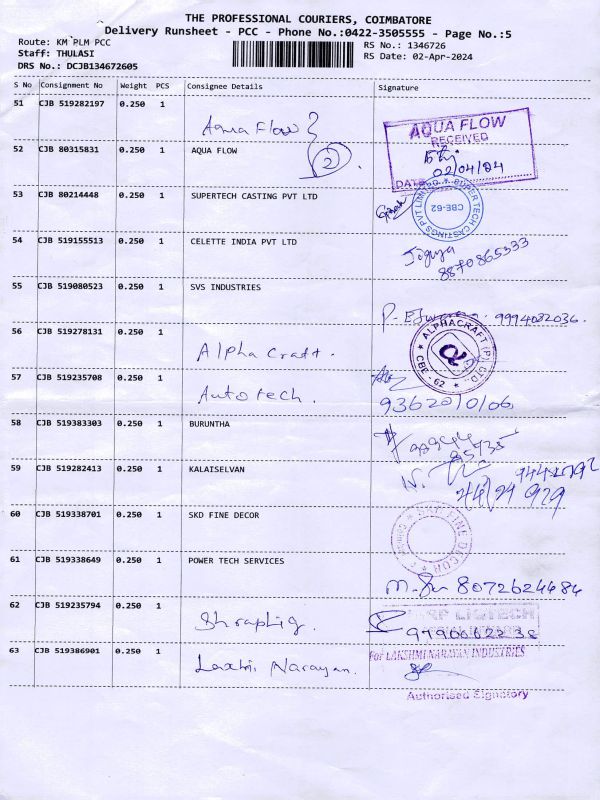 THE PROFESSIONAL COURIERS, COIMBATORE
Delivery Runsheet - PCC - Phone No.:0422-3505555 - Page No.:5
Route: KM PLM PCC
RS No.: 1346726
Staff: THULASI
RS Date: 02-Apr-2024
DRS No.: DCJB134672605
S No Consignment No Weight PCS Consignee Details Signature
51 CJB 519282197 0.250 1 Aqua Flow
AQUA FLOW
RECEIVED
52 CJB 80315831 0.250 1 AQUA FLOW 2
02/04/24
DATE
53 CJB 80214448 0.250 1 SUPERTECH CASTING PVT LTD
SUPER TECH CASTINGS PVT LIMITED
CBE-62
54 CJB 519155513 0.250 1 CELETTE INDIA PVT LTD
8870865333
55 CJB 519080523 0.250 1 SVS INDUSTRIES
P. 9994082036.
56 CJB 519278131 0.250 1 Alpha Craft.
ALPHACRAFT (P) LTD
CBE - 62
57 CJB 519235708 0.250 1 Autotech.
9362010106
58 CJB 519383303 0.250 1 BURUNTHA
59 CJB 519282413 0.250 1 KALAISELVAN
60 CJB 519338701 0.250 1 SKD FINE DECOR
FINE DECOR
61 CJB 519338649 0.250 1 POWER TECH SERVICES
8072624484
62 CJB 519235794 0.250 1
63 CJB 519386901 0.250 1 Laxhmi Narayan.
For LAKSHMI NARAYAN INDUSTRIES
Authorised Signatory